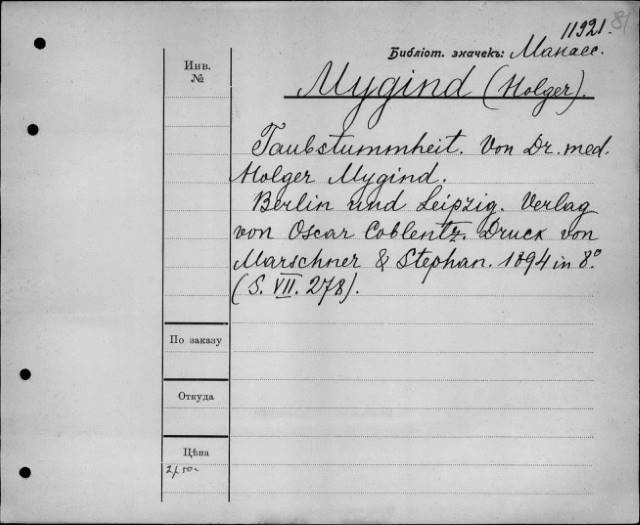 11921.
81
Библіот. значекъ: Манасс.
Инв.
№
Mygind (Holger).
Taubstummheit. Von Dr. med.
Holger Mygind.
Berlin und Leipzig. Verlag
von Oscar Coblentz. Druck von
Marschner & Stephan. 1894 in 8.°
(S. VII. 278).
По заказу
Откуда
Цѣна